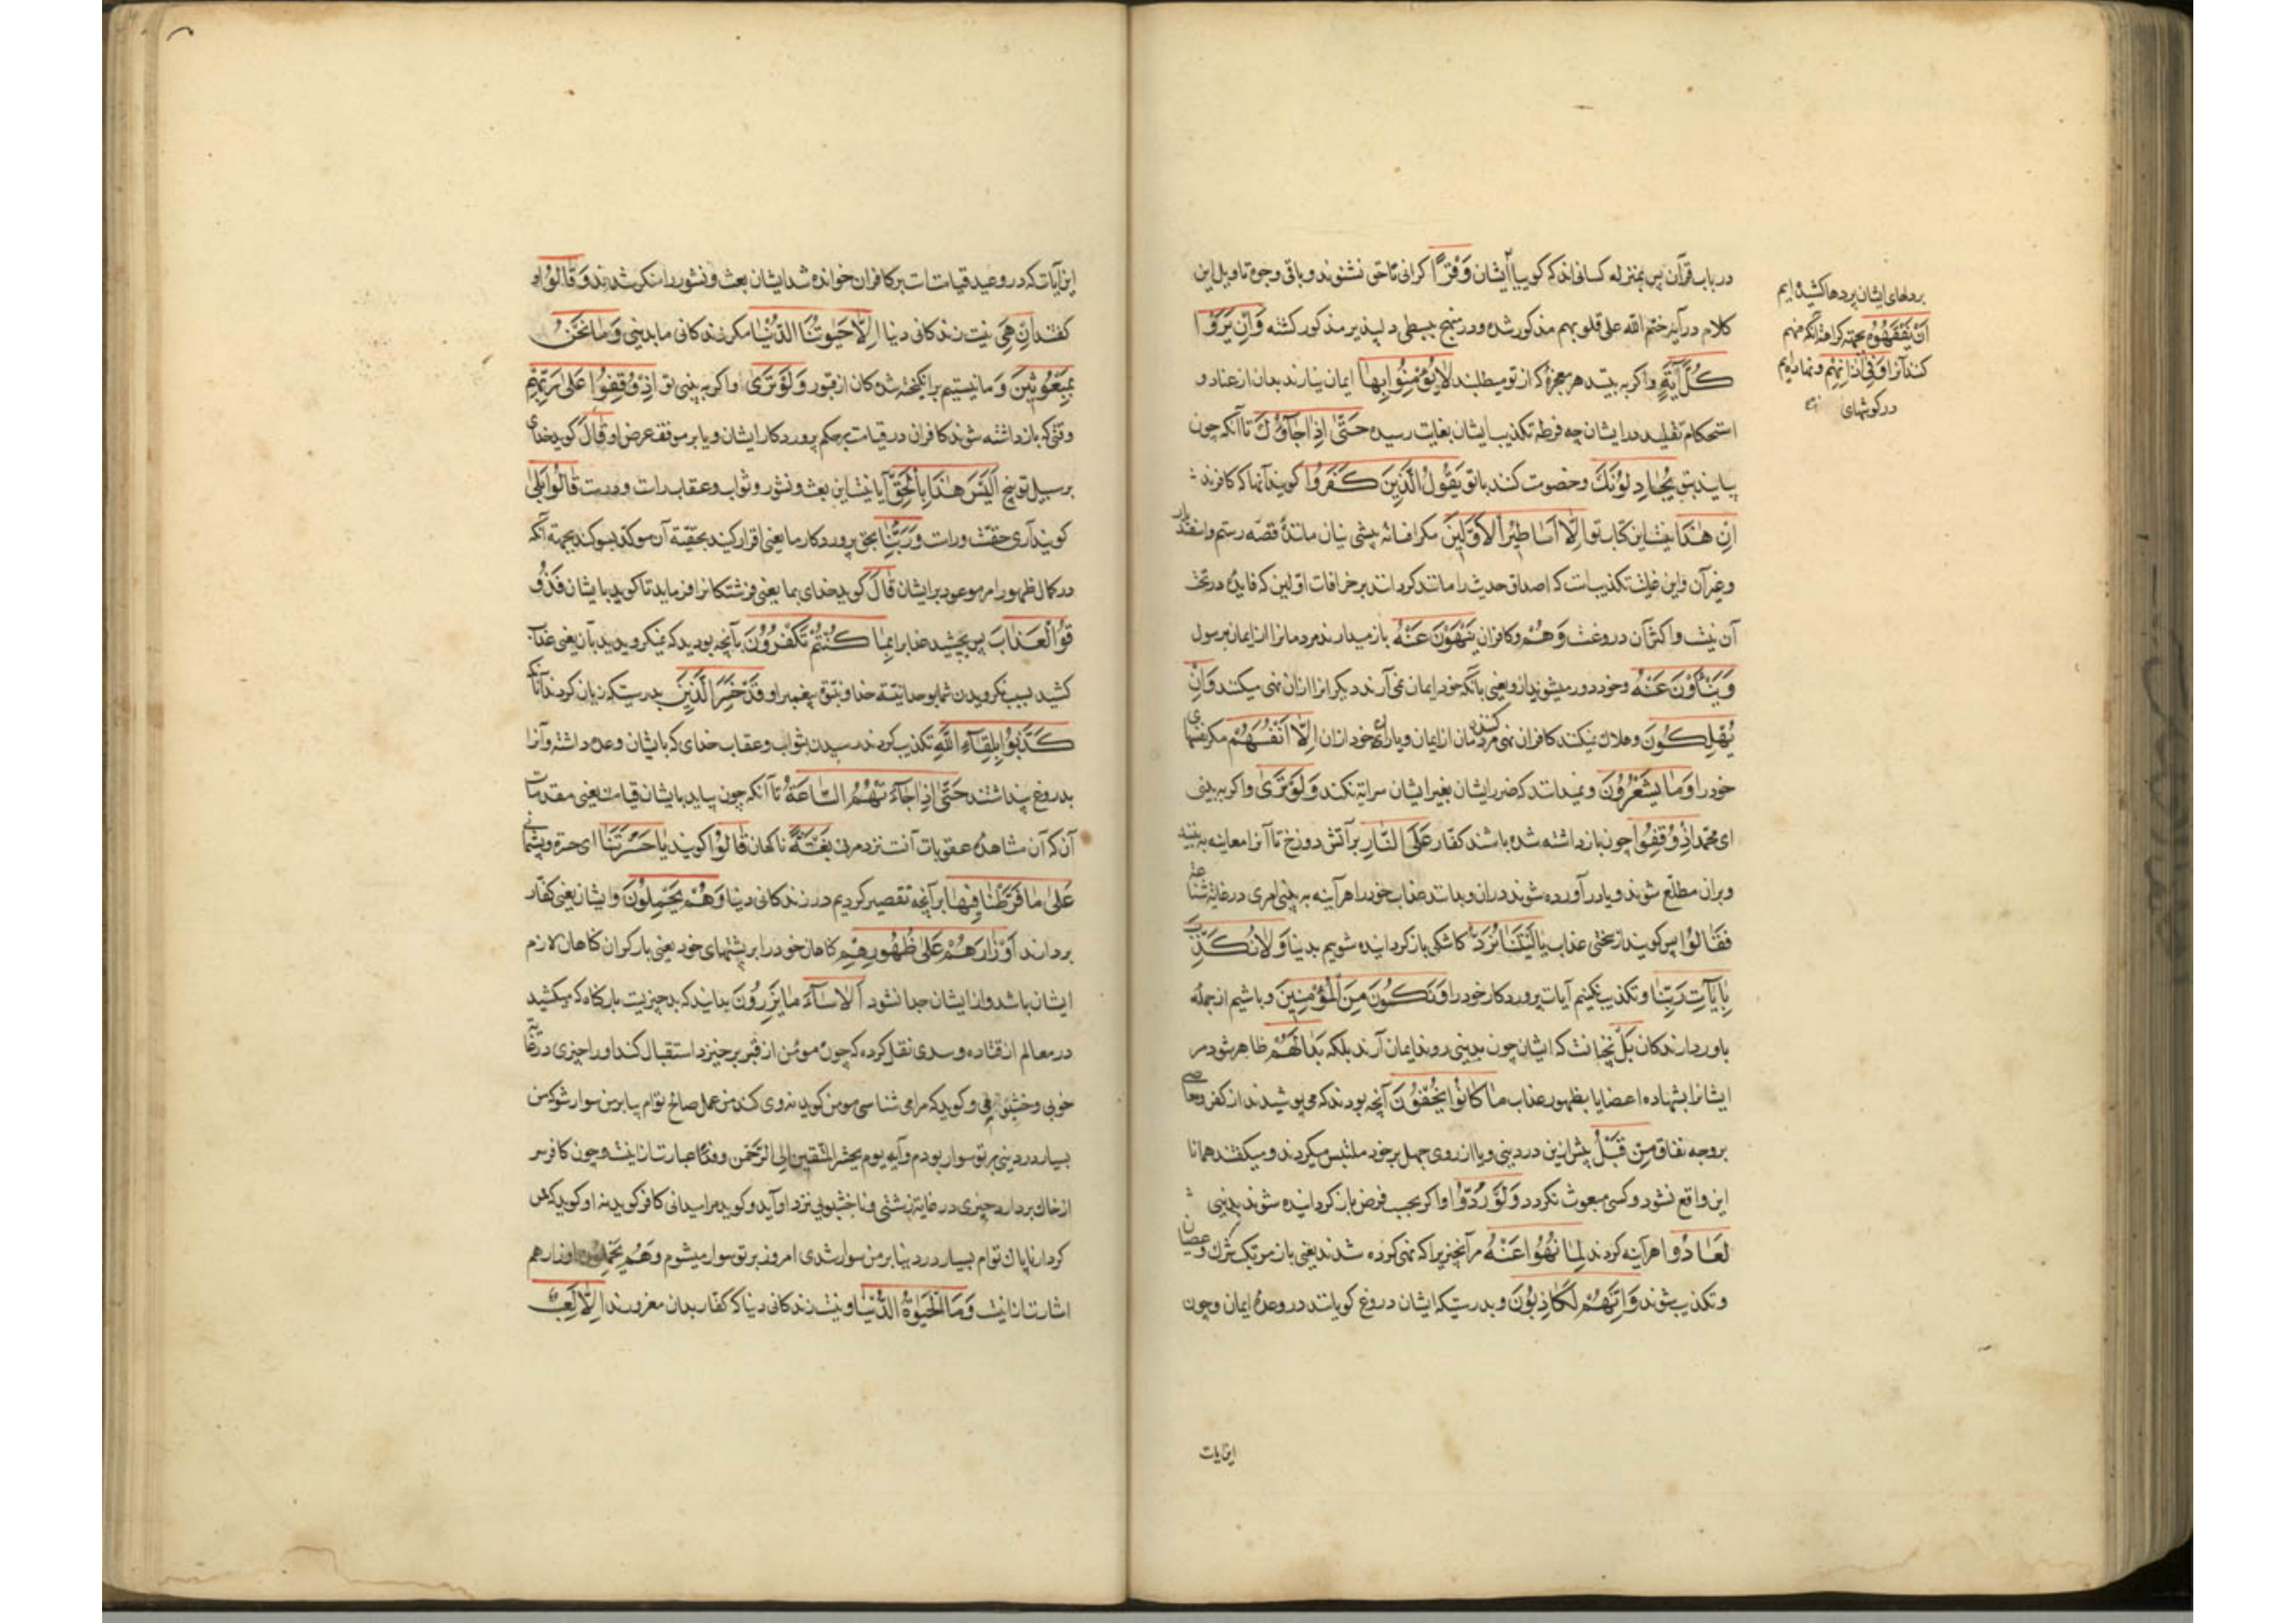 در باب قرآن پس بمنزله کسانی‌اند که گوییا ایشان وَقْرًا کرانی تا حق نشنوند و باقی وجوه تاویل این
کلام در آیه ختم الله علی قلوبهم مذکور شده و در منهج ببسطی دلپذیر مذکور کشته وَاِنْ یَرَوْا
کُلَّ آیَةٍ واکر به بینند هر معجزهٔ که از تو میطلبند لا یُؤْمِنُوا بِها ایمان نیارند بدان از عناد و
استحکام تقلید در ایشان چه فرط تکذیب ایشان بغایت رسیده حَتّٰی اِذا جَآؤُكَ تا آنکه چون
بیایند بتو یُجٰادِلُونَكَ وخصومت کنند با تو یَقُولُ الَّذینَ کَفَرُوا کویند آنها که کافرند
اِنْ هٰذَا نیست این کتاب تو اِلّا اَسَاطِیرُ الْاَوَّلینَ مکر افسانه پیشینیان مانند قصه رستم واسفندیار
وغیر آن واین غایت تکذیبست که اصداق حدیث را مانند کردند بر خرافات اولین که فایده در تحت
آن نیست واکثر آن دروغست وَهُمْ وکافران یَنْهَوْنَ عَنْهُ باز میدارند مردمانرا از ایمان برسول
وَیَنْأَوْنَ عَنْهُ وخود دور میشوند ازو یعنی با آنکه خود ایمان نمی‌آرند دیکرانرا از آن نهی میکنند وَاِنْ
یُهْلِکُونَ وهلاك نمیکنند کافران نهی کننده مردمان از ایمان ویا خود از آن اِلّا اَنْفُسَهُمْ مکر نفسهای
خود را وَمَا یَشْعُرُونَ ونمیدانند که ضرر ایشان بغیر ایشان سرایة نکند وَلَوْ تَرٰی واکر به بینی
ای محمد اِذْ وُقِفُوا چون بازداشته شده باشند کفار عَلَی النّارِ بر آتش دوزخ تا آنرا معاینه به بینند
وبران مطلع شوند ویا درآورده شوند در آن وبدانند عذاب خود را هرآینه به بینی امری در غایة شناعة
فَقَالُوا پس کویند از سختی عذاب یا لَیْتَنَا نُرَدُّ کاشکی باز کردانیده شویم بدنیا وَلا نُکَذِّبَ
بِآیٰاتِ رَبِّنَا وتکذیب نکنیم آیات پروردکار خود را وَنَکُونَ مِنَ الْمُؤْمِنینَ وباشیم از جمله
باوردارندکان بَلْ نچنانست که ایشان چون بدنیی روند ایمان آرند بلکه بَدٰا لَهُمْ ظاهر شود مر
ایشانرا بشهاده اعضا یا بظهور عذاب مٰا کانُوا یُخْفُونَ آنچه بودند که می‌پوشیدند از کفر ومعاصی
بر وجه نفاق مِنْ قَبْلُ پیش ازین در دنیی ویا از روی جهل بر خود ملتبس میکردند ومیکفتند همانا
این واقع نشود وکسی مبعوث نکردد وَلَوْ رُدُّوا واکر بحسب فرض باز کردانیده شوند بدنیی
لَعَادُوا هرآینه کردند لِمَا نُهُوا عَنْهُ مر آنچیز را که نهی کرده شدند یعنی باز مرتکب شرك وعصیان
وتکذیب شوند وَاِنَّهُمْ لَکَاذِبُونَ وبدرستیکه ایشان دروغ کویانند در وعدهٔ ایمان وچون
بر دلهای ایشان پردها کشیده‌ایم
اَنْ یَفْقَهُوهُ بجهة کراهة آنکه فهم
کنند آنرا وَفِی اٰذَانِهِمْ ونهاده‌ایم
در کوشهای
این آیات
این آیات که در وعید قیامتست بر کافران خوانده شد ایشان بعث ونشور را منکر شدند وَقَالُوا و
کفتند اِنْ هِیَ نیست زندکانی دنیا اِلّا حَیٰوتُنَا الدُّنْیٰا مکر زندکانی ما بدنیی وَمَا نَحْنُ
بِمَبْعُوثینَ وما نیستیم برانکیخته شدکان از قبور وَلَوْ تَرٰی واکر به بینی تو اِذْ وُقِفُوا عَلٰی رَبِّهِمْ
وقتی که بازداشته شوند کافران در قیامت بر حکم پروردکار ایشان ویا بر موقف عرض او قٰالَ کوید خدای
بر سبیل توبیخ اَلَیْسَ هٰذَا بِالْحَقِّ آیا نیست این بعث ونشور وثواب وعقاب راست ودرست قٰالُوا بَلٰی
کویند آری حقست وراست وَرَبِّنٰا بحق پروردکار ما یعنی اقرار کنند بحقیة آن موکد بسوکند بجهة آنکه
در کمال ظهور امر موعود بر ایشان قٰالَ کوید خدای بما یعنی فرشتکانرا فرماید تا کوید با ایشان فَذُو
قُوا الْعَذٰابَ پس بچشید عذابرا بِمٰا کُنْتُمْ تَکْفُرُونَ بآنچه بودید که نمیکرویدید بآن یعنی عذاب
کشید بسبب نکرویدن شما بوحدانیة خدا ونبوة پیغمبر او قَدْ خَسِرَ الَّذینَ بدرستیکه زیان کردند آنانکه
کَذَّبُوا بِلِقٰآءِ اللّٰهِ تکذیب کردند رسیدن بثواب وعقاب خدای که با ایشان وعده داشته وآنرا
بدروغ پنداشتند حَتّٰی اِذا جٰآءَتْهُمُ السّٰاعَةُ تا آنکه چون بیاید بایشان قیامت یعنی مقدمات
آن که آن مشاهدهٔ عقوبات آنست نزد مرک بَغْتَةً ناکهان قٰالُوا کویند یٰا حَسْرَتَنٰا ای حسرة وپشیمانی
عَلٰی مٰا فَرَّطْنٰا فیهٰا بر آنچه تقصیر کردیم در زندکانی دنیا وَهُمْ یَحْمِلُونَ وایشان یعنی کفار
بردارند اَوْزٰارَهُمْ عَلٰی ظُهُورِهِمْ کناهان خود را بر پشتهای خود یعنی بار کران کناهان لازم
ایشان باشد واز ایشان جدا نشود اَلا سٰآءَ مٰا یَزِرُونَ بدانید که بد چیزیست بار کناه که میکشید
در معالم از قتاده وسدی نقل کرده که چون مومن از قبر برخیزد استقبال کند او را چیزی در غایة
خوبی وخشبوی وکوید که مرا می شناسی مومن کوید نه وی کند من عمل صالح توام بیا بر من سوار شو که من
بسیار در دنیی بر تو سوار بودم وآیه یوم یحشر المتقین الی الرحمن وفدًا عبارت ازاینست وچون کافر سر
از خاك بردارد چیزی در غایة زشتی وناخشبویی نزد او آید وکوید مرا میدانی کافر کوید نه او کوید که من
کردار ناپاك توام بسیار در دنیا بر من سوار شدی امروز بر تو سوار میشوم وَهُمْ یَحْمِلُونَ اوزارهم
اشارت ازانست وَمَا الْحَیٰوةُ الدُّنْیٰا ونیست زندکانی دنیا که کفار بدان مغرورند اِلّا لَعِبٌ